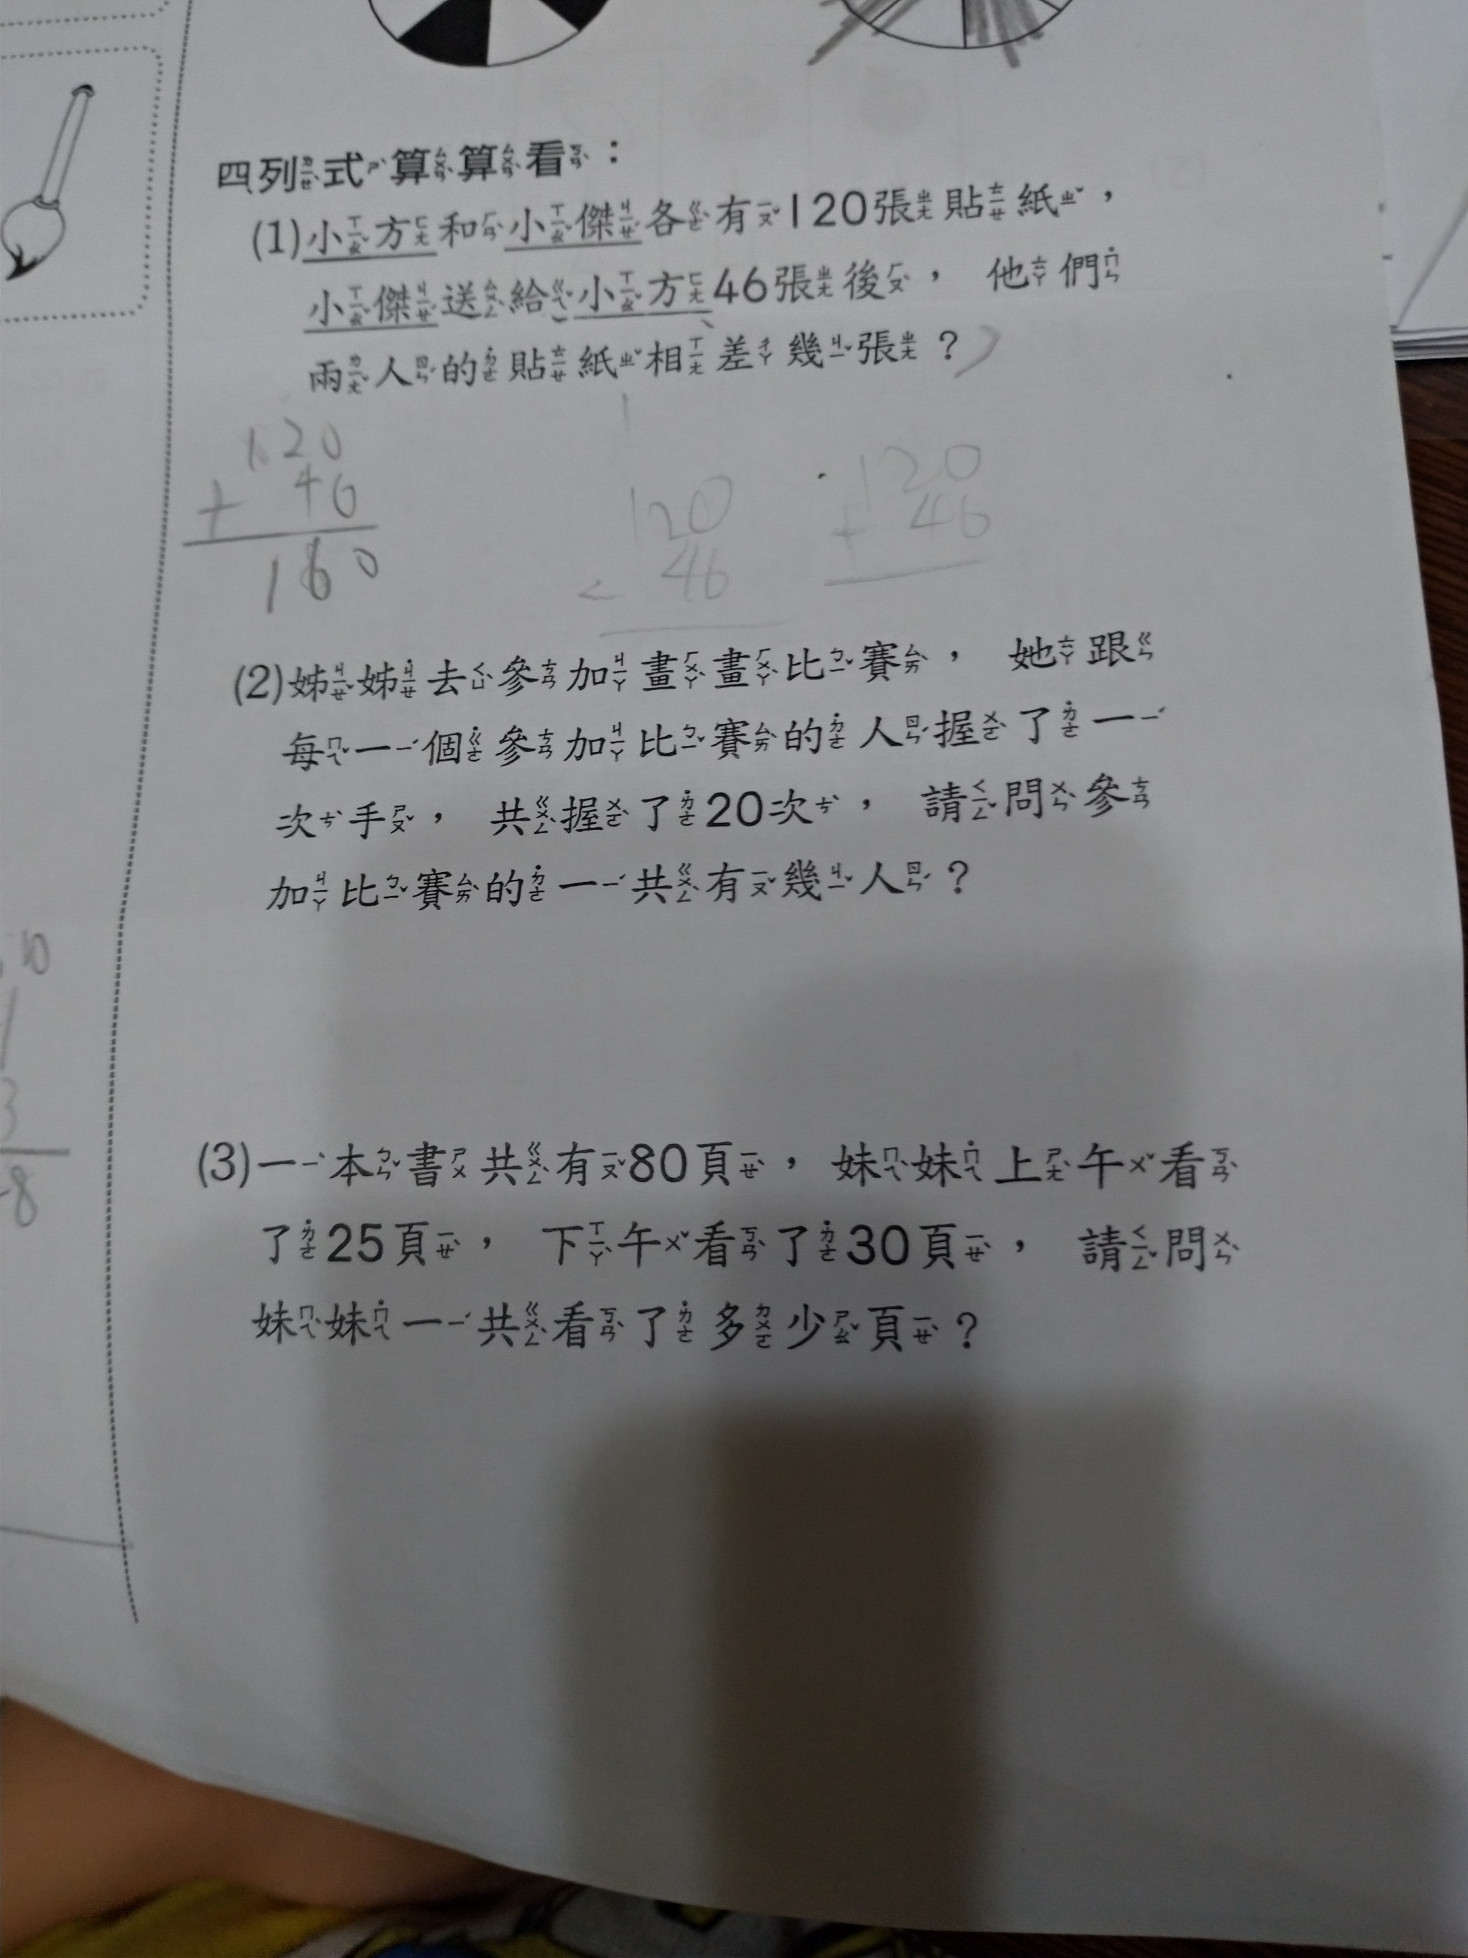 四列式算算看：
(1)小方和小傑各有120張貼紙，
小傑送給小方46張後，他們
兩人的貼紙相差幾張？
120
+ 46
160
120
46
120
+ 46
(2)姊姊去參加畫畫比賽，她跟
每一個參加比賽的人握了一
次手，共握了20次，請問參
加比賽的一共有幾人？
(3)一本書共有80頁，妹妹上午看
了25頁，下午看了30頁，請問
妹妹一共看了多少頁？
10
3
8